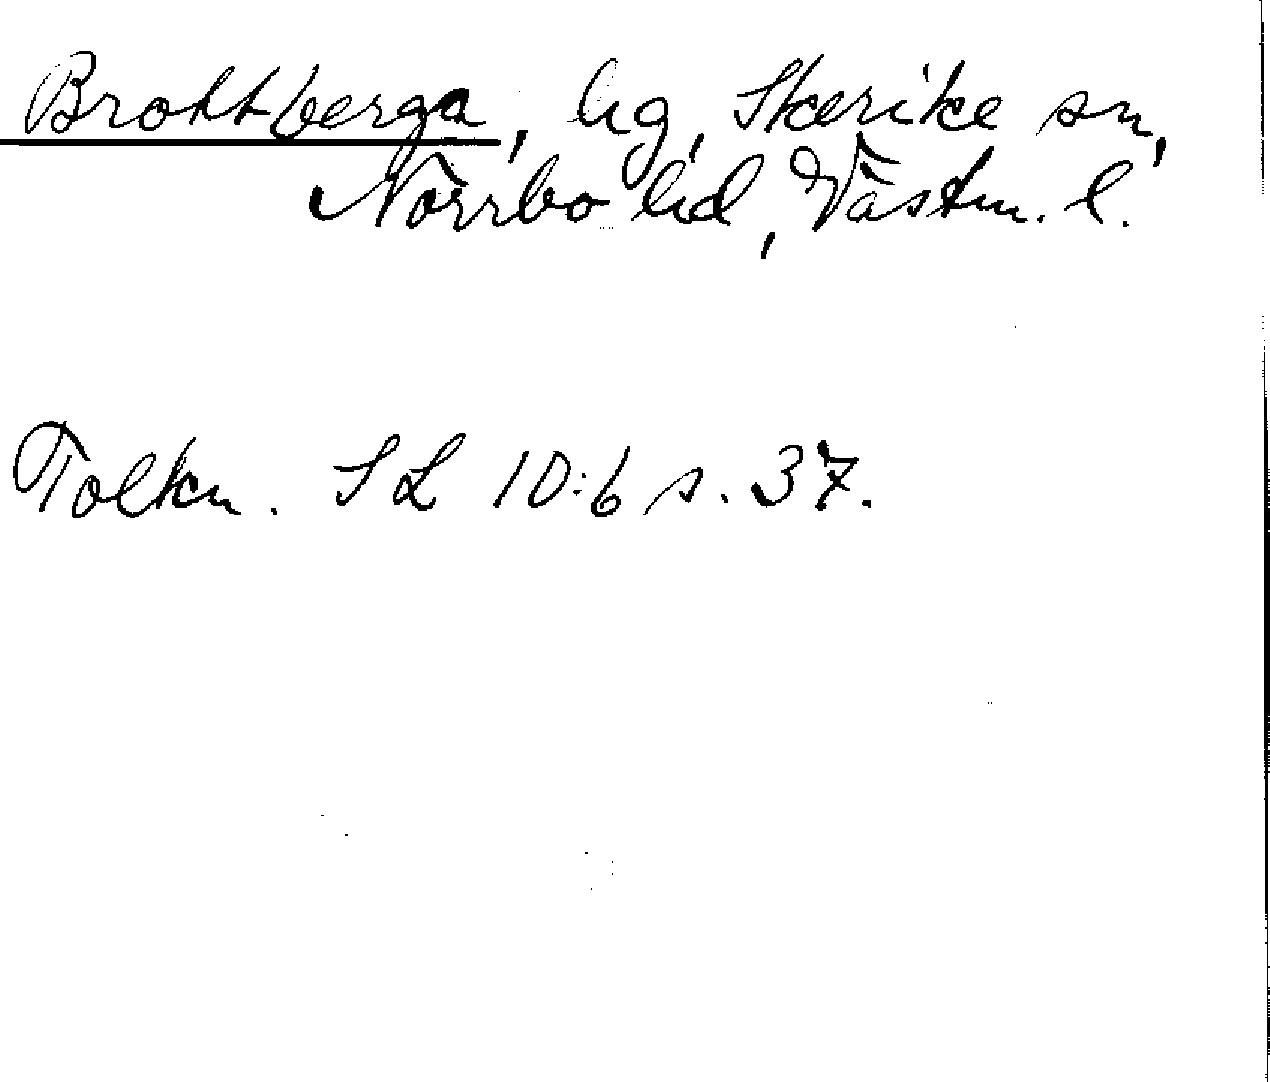 Brottberga, hg, Skerike sn,
Norrbo hd, Västm. l.
Tolkn. SL 10:6 s. 37.